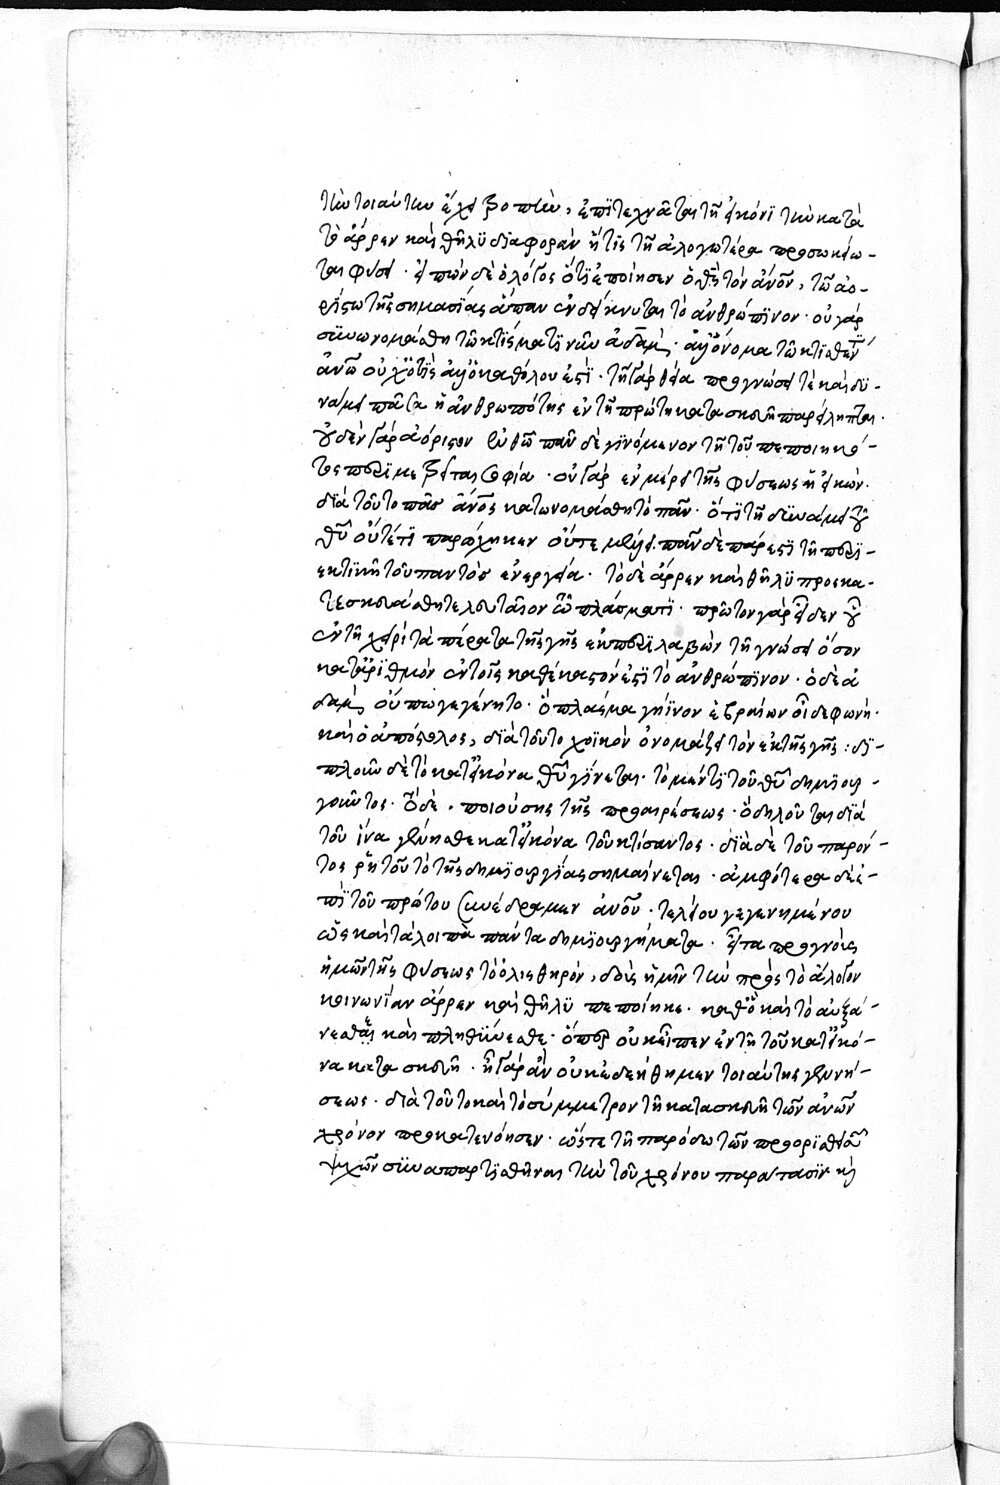 τὴν τοιαύτην ἕλξει ῥοπὴν, ἐπιτεχνᾶται τῇ εἰκόνι τὴν κατὰ
τὸ ἄρρεν καὶ θῆλυ διαφορὰν ἥτις τῇ ἀλογωτέρα προσωκείω-
ται φύσει. εἰπὼν δὲ ὁ λόγος ὅτι ἐποίησεν ὁ θς τὸν ἄνον, τῶ ἀο-
ρίστω τῆς σημασίας ἅπαν ἐνδείκνυται τὸ ἀνθρώπινον. οὐ γὰρ
συνωνομάσθη τῶ κτίσματι νῦν ἀδὰμ. ἀλλ' ὄνομα τῶ κτισθέντι
ἀνω οὐχ ὅτις ἀλλ' ὁ καθόλου ἐστὶ. τῇ γὰρ θεία προγνώσει τὲ καὶ δυ-
νάμει πᾶσα ἡ ἀνθρωπότης ἐν τῇ πρώτη κατασκευῆ παρείληπται.
οὐδὲν γὰρ ἀόριστον θεῶ πᾶν δὲ γινόμενον τῇ τοῦ πεποιηκό-
τος περιμετρεῖται σοφία. οὐ γὰρ ἐν μέρει τῆς φύσεως ἡ εἰκών.
διὰ τοῦτο πᾶσ ἄνος κατωνομάσθη τὸ πᾶν. ὅτι τῇ δυνάμει τοῦ
θυ οὔτέ τι παρώχηκεν οὔτε μέλλει. πᾶν δὲ πάρεστι τῇ περι-
εκτικῆ τοῦ παντὸσ ἐνεργεία. τὸ δὲ ἄρρεν καὶ θῆλυ προσκα-
τεσκευάσθη τελευταῖον τῶ πλάσματι. πρῶτον γὰρ εἶδεν ὁ
ἐν τῇ χειρὶ τὰ πέρατα τῆς γῆς ἐμπεριλαβὼν τῇ γνώσει ὅσον
κατ' ἀριθμὸν ἐν τοῖς καθέκαστόν ἐστι τὸ ἀνθρώπινον. ὁ δὲ ἀ
δαμ οὔπω γεγένητο. ὃ πλάσμα γήϊνον ἑβραίων οἶδε φωνή.
καὶ ὁ ἀπόστολος, διὰ τοῦτο χοϊκὸν ὀνομάζει τὸν ἐκ τῆς γῆς : δι-
πλοῦν δὲ τὸ κατ' εἰκόνα θυ γίνεται. τὸ μέν τι τοῦ θυ δημιουρ-
γοῦντος. ὃ δὲ, ποιούσης τῆς προαιρέσεως. ὃ δηλοῦται διὰ
τοῦ ἵνα γένησθε κατ' εἰκόνα τοῦ κτίσαντος. διὰ δὲ τοῦ παρόν-
τος ῥητοῦ τὸ τῆς δημιουργίας σημαίνεται. ἀμφότερα δὲ ἐ-
πὶ τοῦ πρώτου συνέδραμεν ἀνου. τελείου γεγενημένου
ὡς καὶ τὰ λοιπὰ πάντα δημιουργήματα. εἶτα προγνοὺς
ἡμῶν τῆς φύσεως τὸ ὀλισθηρόν, δοὺς ἡμῖν τὴν πρὸς τὸ ἄλογον
κοινωνίαν ἄρρεν καὶ θῆλυ πεποίηκε. καθ' ὃ καὶ τὸ αὐξά-
νεσθαι καὶ πληθύνεσθε. ὅπερ οὐκ εἶπεν ἐν τῇ τοῦ κατ' εἰκό-
να κατασκευῆ. ἦ γὰρ ἂν οὐκ ἐδεήθημεν τοιαύτης γεννή-
σεως. διὰ τοῦτο καὶ τὸ σύμμετρον τῇ κατασκευῆ τῶν ἀνων
χρόνον προκατενόησεν. ὥστε τῇ παρόδω τῶν προορισθεισῶν
ψυχῶν συναπαρτισθῆναι τὴν τοῦ χρόνου παράτασιν καὶ